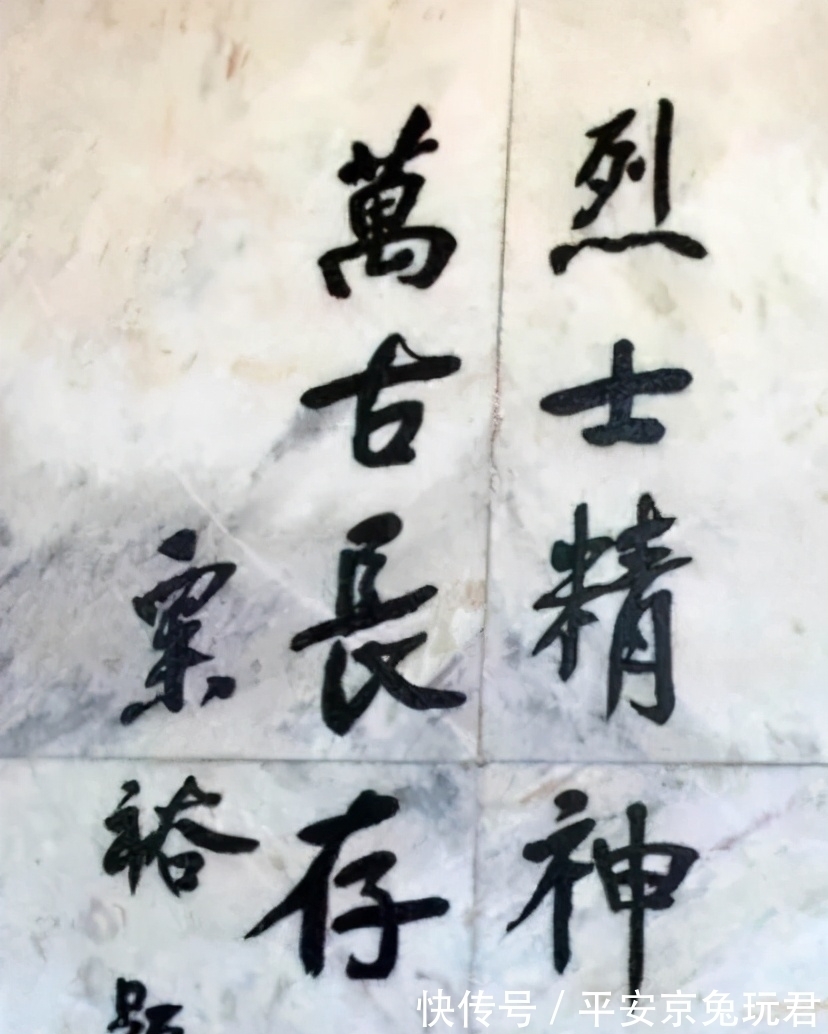 烈士精神
萬古長存
粟裕题
快传号 / 平安京兔玩君